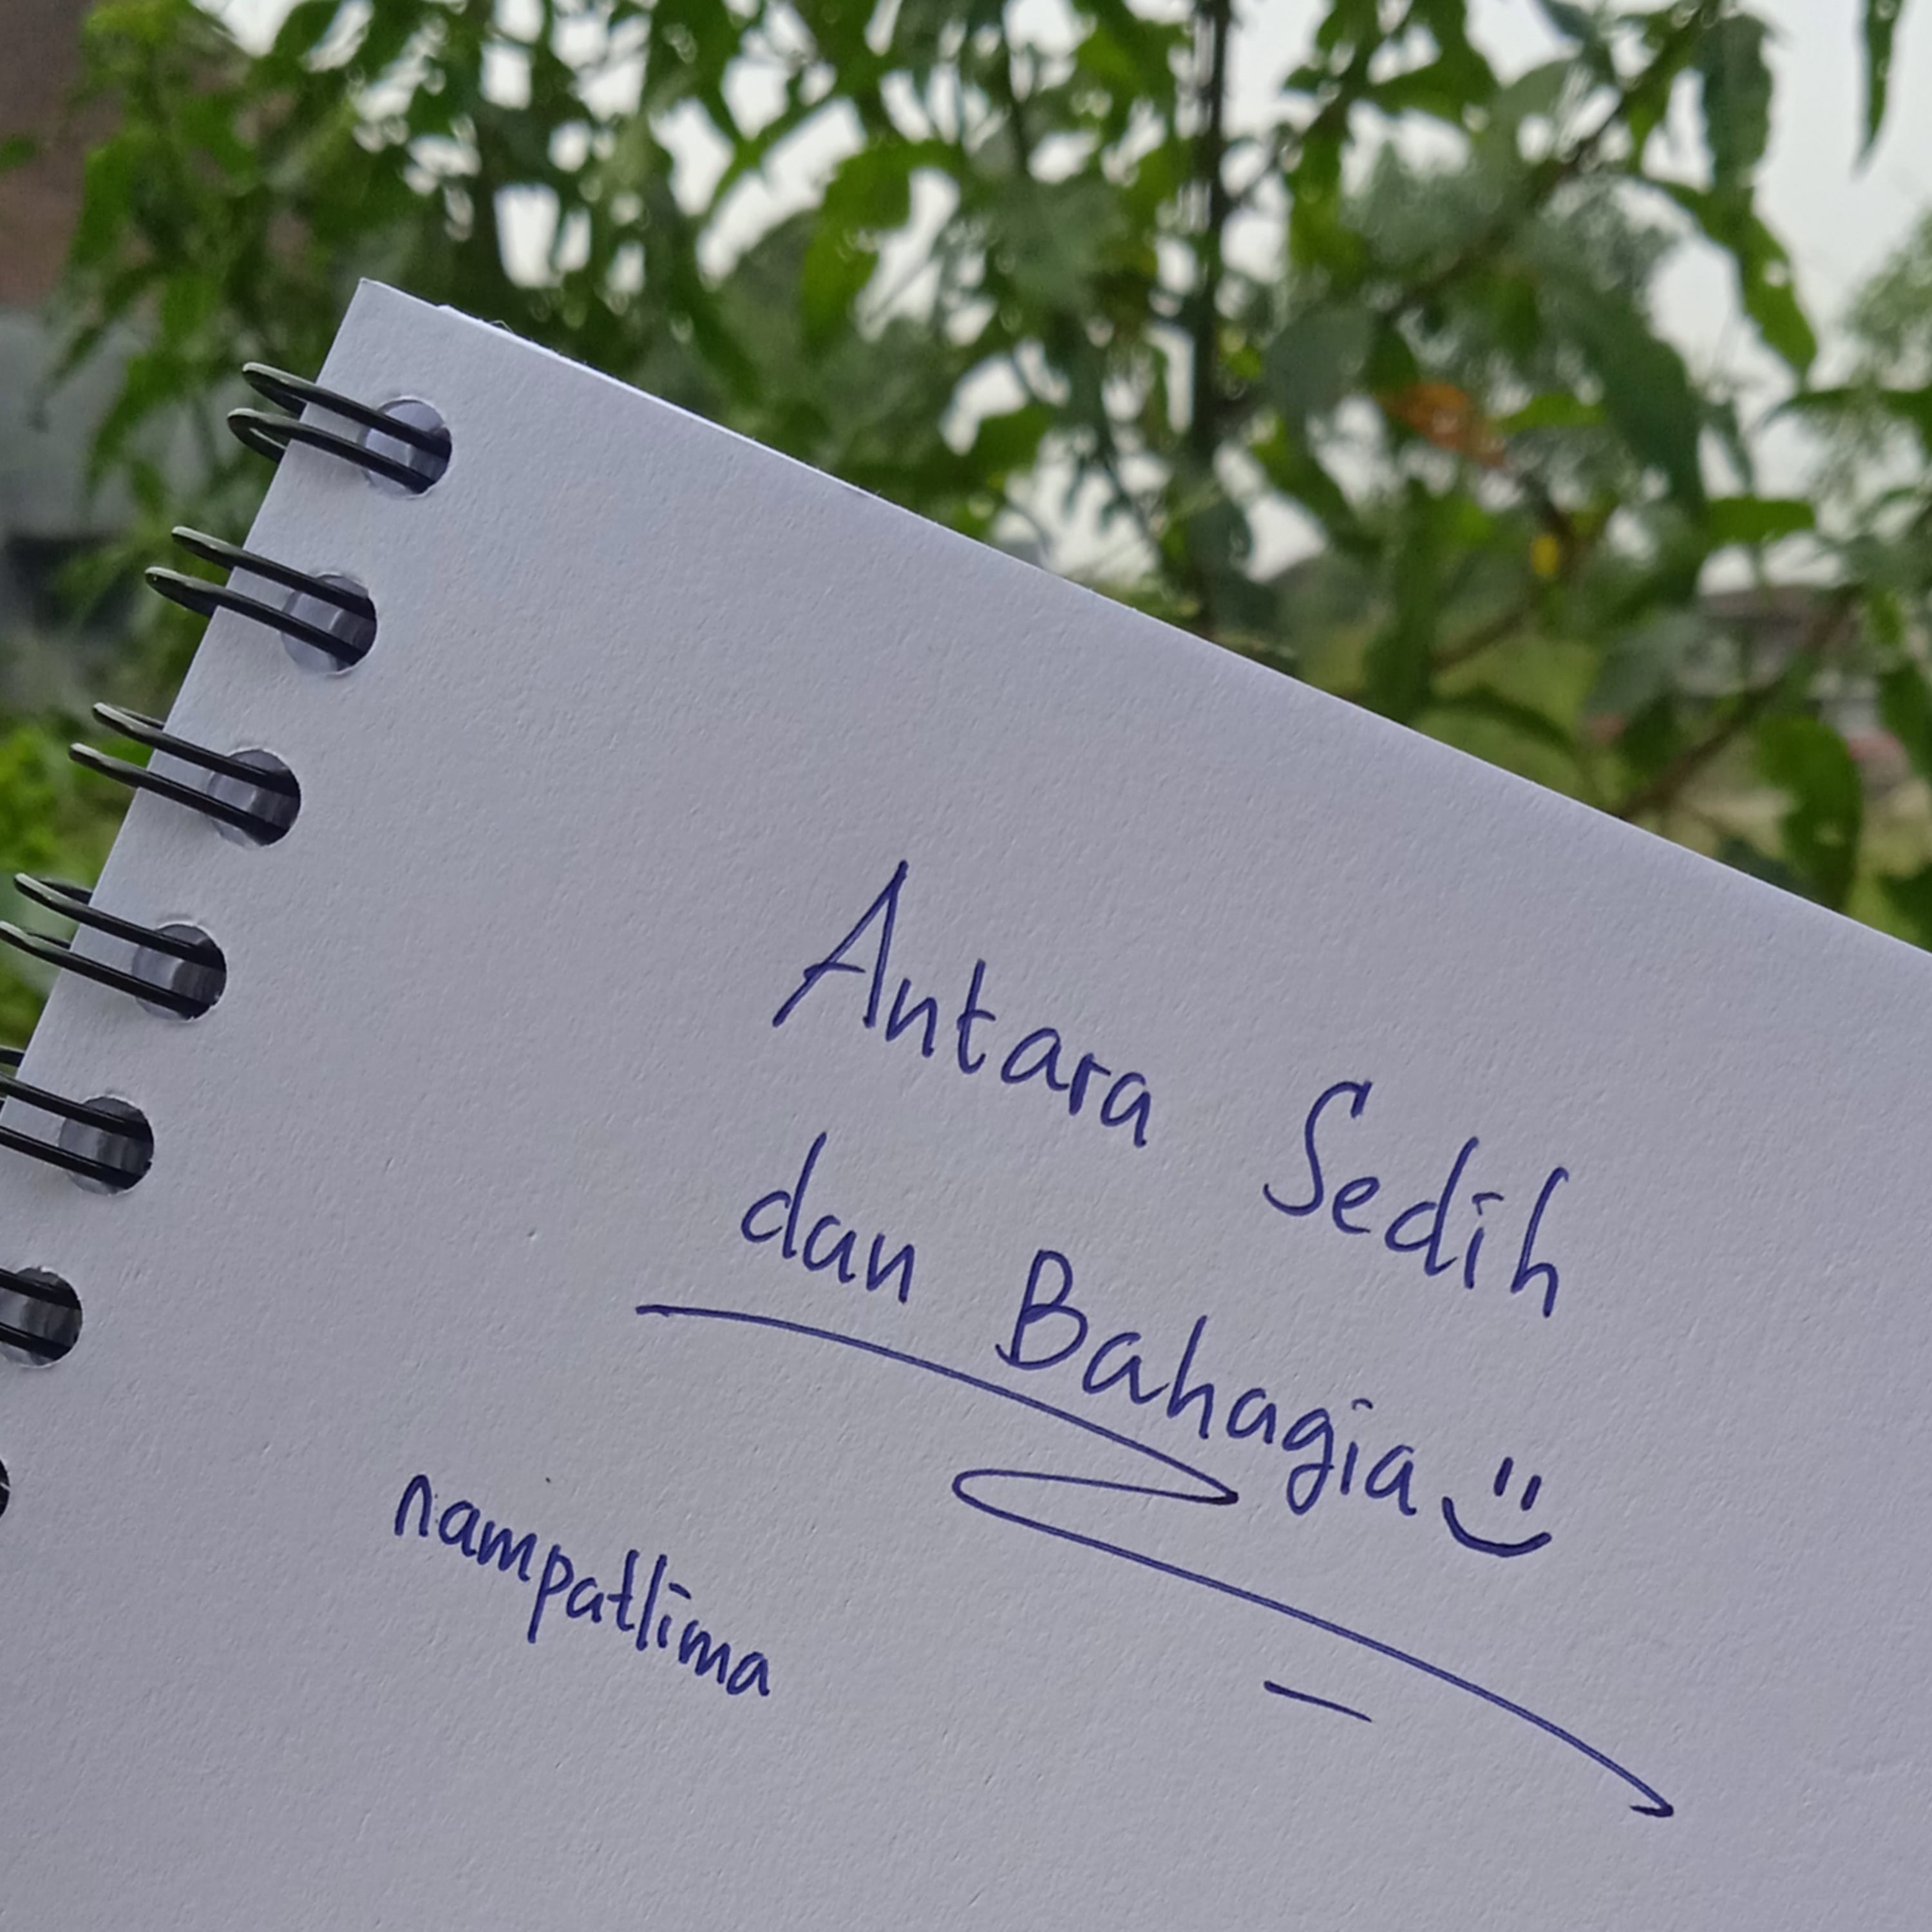 Antara Sedih
dan Bahagia
nampatlima